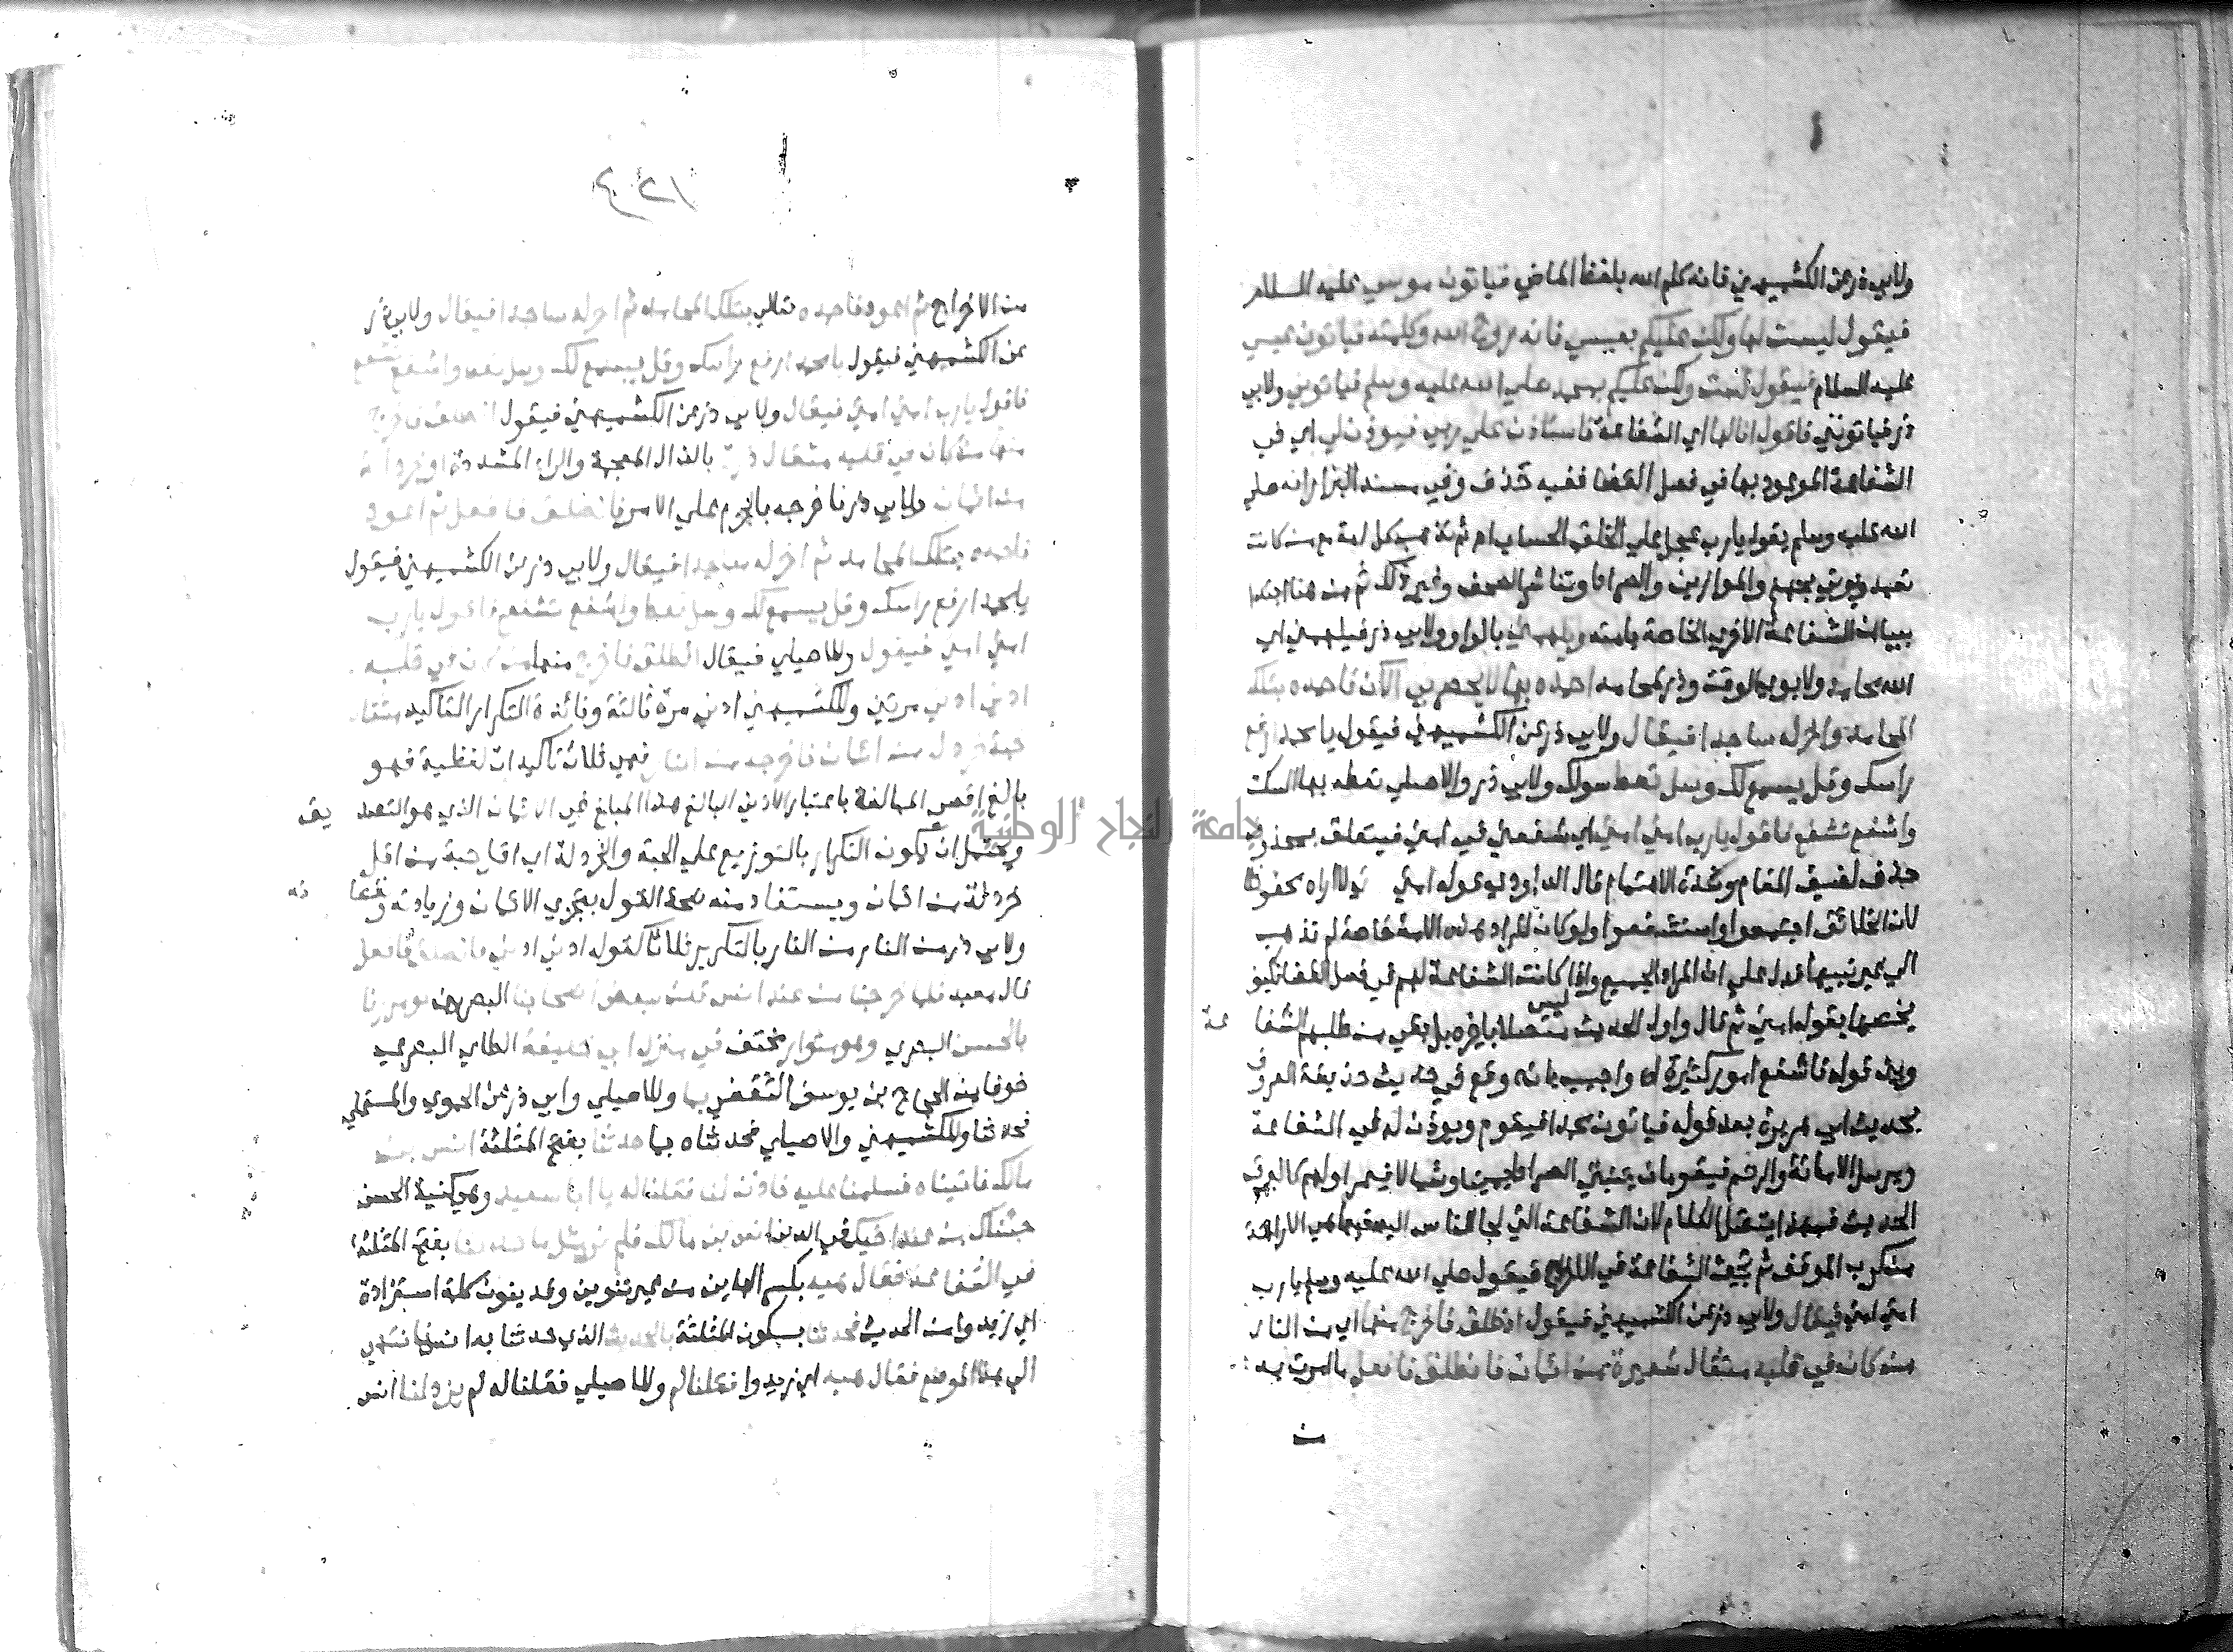 ولابي ذر عن الكشميهني فانه كلم الله بلفظ الماضي فياتون موسي عليه السلام
فيقول لست لها ولكن عليكم بعيسي فانه روح الله وكلمته فياتون عيسي
عليه السلام فيقول لست ولكن عليكم بمحمد صلي الله عليه وسلم فياتوني ولابي
ذر فياتونني فاقول انا لها اي الشفاعة فاستاذن علي ربي فيوذن لي اي في
الشفاعة الموعود بها في فصل القضا ففيه حذف وفي مسند البزار انه صلي
الله عليه وسلم يقول يارب عجل علي الخلق الحساب اه ثم تذهب كل امة مع من كانت
تعبد ويوتي بجهنم والموازين والصراط وتناثر الصحف وغير ذلك ثم من هنا ابتدا
ببيان الشفاعة الاخري الخاصة بامته ويلهمني بالواو ولابي ذر فيلهمني اي
الله محامد ولابوي الوقت وذر بمحامد احمده بها لا يحضرني الآن فاحمده بتلك
المحامد واخر له ساجدا فيقال ولابي ذر عن الكشميهني فيقول يا محمد ارفع
راسك وقل يسمع لك وسل تعط سولك ولابي ذر والاصيلي تعطه بها السكت
واشفع تشفع فاقول يارب امتي امتي اي شفعني في امتي فيتعلق بمحذوف
حذف لضيق المقام وشدة الاهتمام قال الداودي قوله امتي لا اراه محفوظا
لان الخلائق اجتمعوا واستشفعوا ولو كان المراد هذه الامة خاصة لم تذهب
الي غير نبيها فدل علي ان المراد الجميع واذا كانت الشفاعة لهم في فصل القضا فكيف
يخصها بقوله امتي ثم قال واول الحديث ليس متصلا باخره بل بقي من طلبهم الشفاعة
وبين قوله فاشفع امور كثيرة اه واجيب بانه وقع في حديث حذيفة المعروف
بحديث ابي هريرة بعد قوله فياتون محمدا فيقوم ويوذن له في الشفاعة
ويرسل الامانة والرحم فيقومان بجنبتي الصراط يمينا وشمالا فيمر اولهم كالبرق
الحديث فبهذا يتصل الكلام لان الشفاعة التي لجا الناس اليه فيها هي الاراحة
من كرب الموقف ثم تجيئ الشفاعة في الاخراج فيقول صلي الله عليه وسلم يارب
امتي امتي فيقال ولابي ذر عن الكشميهني فيقول انطلق فاخرج منها اي من النار
من كان في قلبه مثقال شعيرة من ايمان فانطلق فافعل ما امرت به
من الاخراج ثم اعود فاحمده تعالي بتلك المحامد ثم اخر له ساجدا فيقال ولابي ذر
عن الكشميهني فيقول يا محمد ارفع راسك وقل يسمع لك وسل تعط واشفع تشفع
فاقول يارب امتي امتي فيقال ولابي ذر عن الكشميهني فيقول انطلق فاخرج
منها من كان في قلبه مثقال ذرة بالذال المعجمة والراء المشددة او خردلة
من ايمان ولابي ذر فاخرجه بالجزم علي الامر فانطلق فافعل ثم اعود
فاحمده بتلك المحامد ثم اخر له ساجدا فيقال ولابي ذر عن الكشميهني فيقول
يا محمد ارفع راسك وقل يسمع لك وسل تعط واشفع تشفع فاقول يارب
امتي امتي فيقول وللاصيلي فيقال انطلق فاخرج منها من كان في قلبه
ادني ادني مرتين وللكشميهني ادني مرة ثالثة وفائدة التكرار التاكيد مثقال
حبة خردل من ايمان فاخرجه من النار فهي ثلاث تاكيدات لفظية فهو
بالغ اقصي المبالغة باعتبار الادني البالغ هذا المبلغ في الايمان الذي هو التصديق
ويحتمل ان يكون التكرار بالتوزيع علي الحبة والخردلة اي اقل حبة من اقل
خردلة من ايمان ويستفاد منه صحة القول بتجزي الايمان وزيادته ونقصانه
ولابي ذر من النار من النار بالتكرير ثلاثا كقوله ادني ادني فانطلق فافعل
قال معبد فلما خرجنا من عند انس قلت لبعض اصحابنا البصريين لو مررنا
بالحسن البصري وهو متوار مختف في منزل ابي خليفة الطاي البصري
خوفا من الحجاج بن يوسف الثقفي بما وللاصيلي وابي ذر عن الحموي والمستملي
فحدثنا وللكشميهني والاصيلي فحدثناه بما حدثنا بفتح المثلثة انس بن
مالك فاتيناه فسلمنا عليه فاذن لنا فقلنا له يا ابا سعيد وهي كنية الحسن
جئناك من عند اخيك في الدين انس بن مالك فلم نر مثل ما حدثنا بفتح المثلثة
في الشفاعة فقال هيه بكسر الهاين من غير تنوين وقد ينون كلمة استزادة
اي زيدوا من الحديث فحدثنا بسكون المثلثة بالحديث الذي حدثنا به انس فانتهي
الي هذا الموضع فقال هيه اي زيدوا فقلنا لم وللاصيلي فقلنا له لم يزد لنا انس